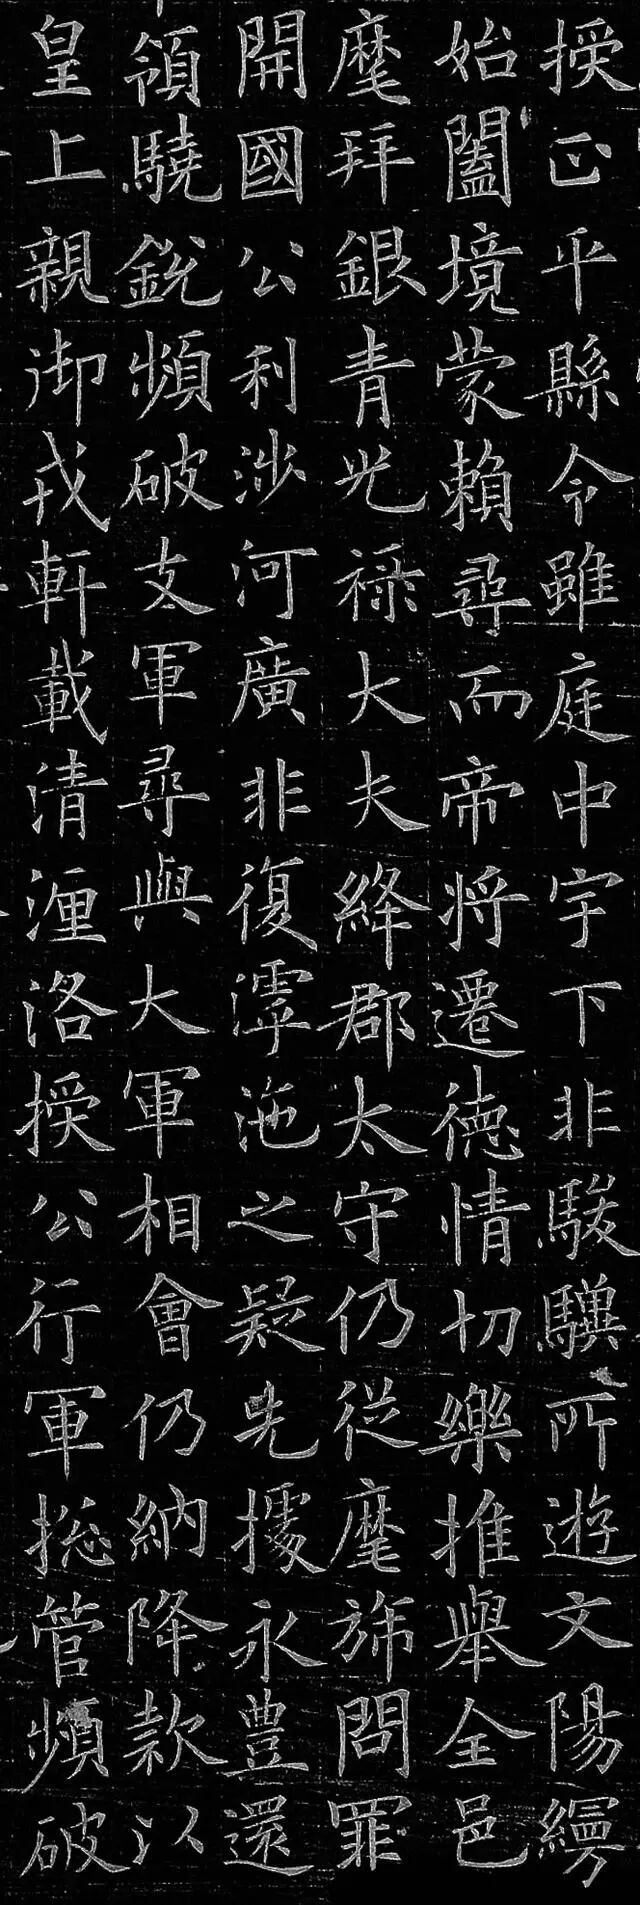 授正平縣令雖庭中宇下非駿驥所遊文陽纋
始闔境蒙賴尋而帝將遷德情切樂推舉全邑
麾拜銀青光祿大夫絳郡太守仍從麾旆問罪
開國公利涉河廣非復滹沲之疑先據永豊還
領驍銳頻破支軍尋與大軍相會仍納降款以
皇上親御戎軒載清湹洛授公行軍捴管頻破